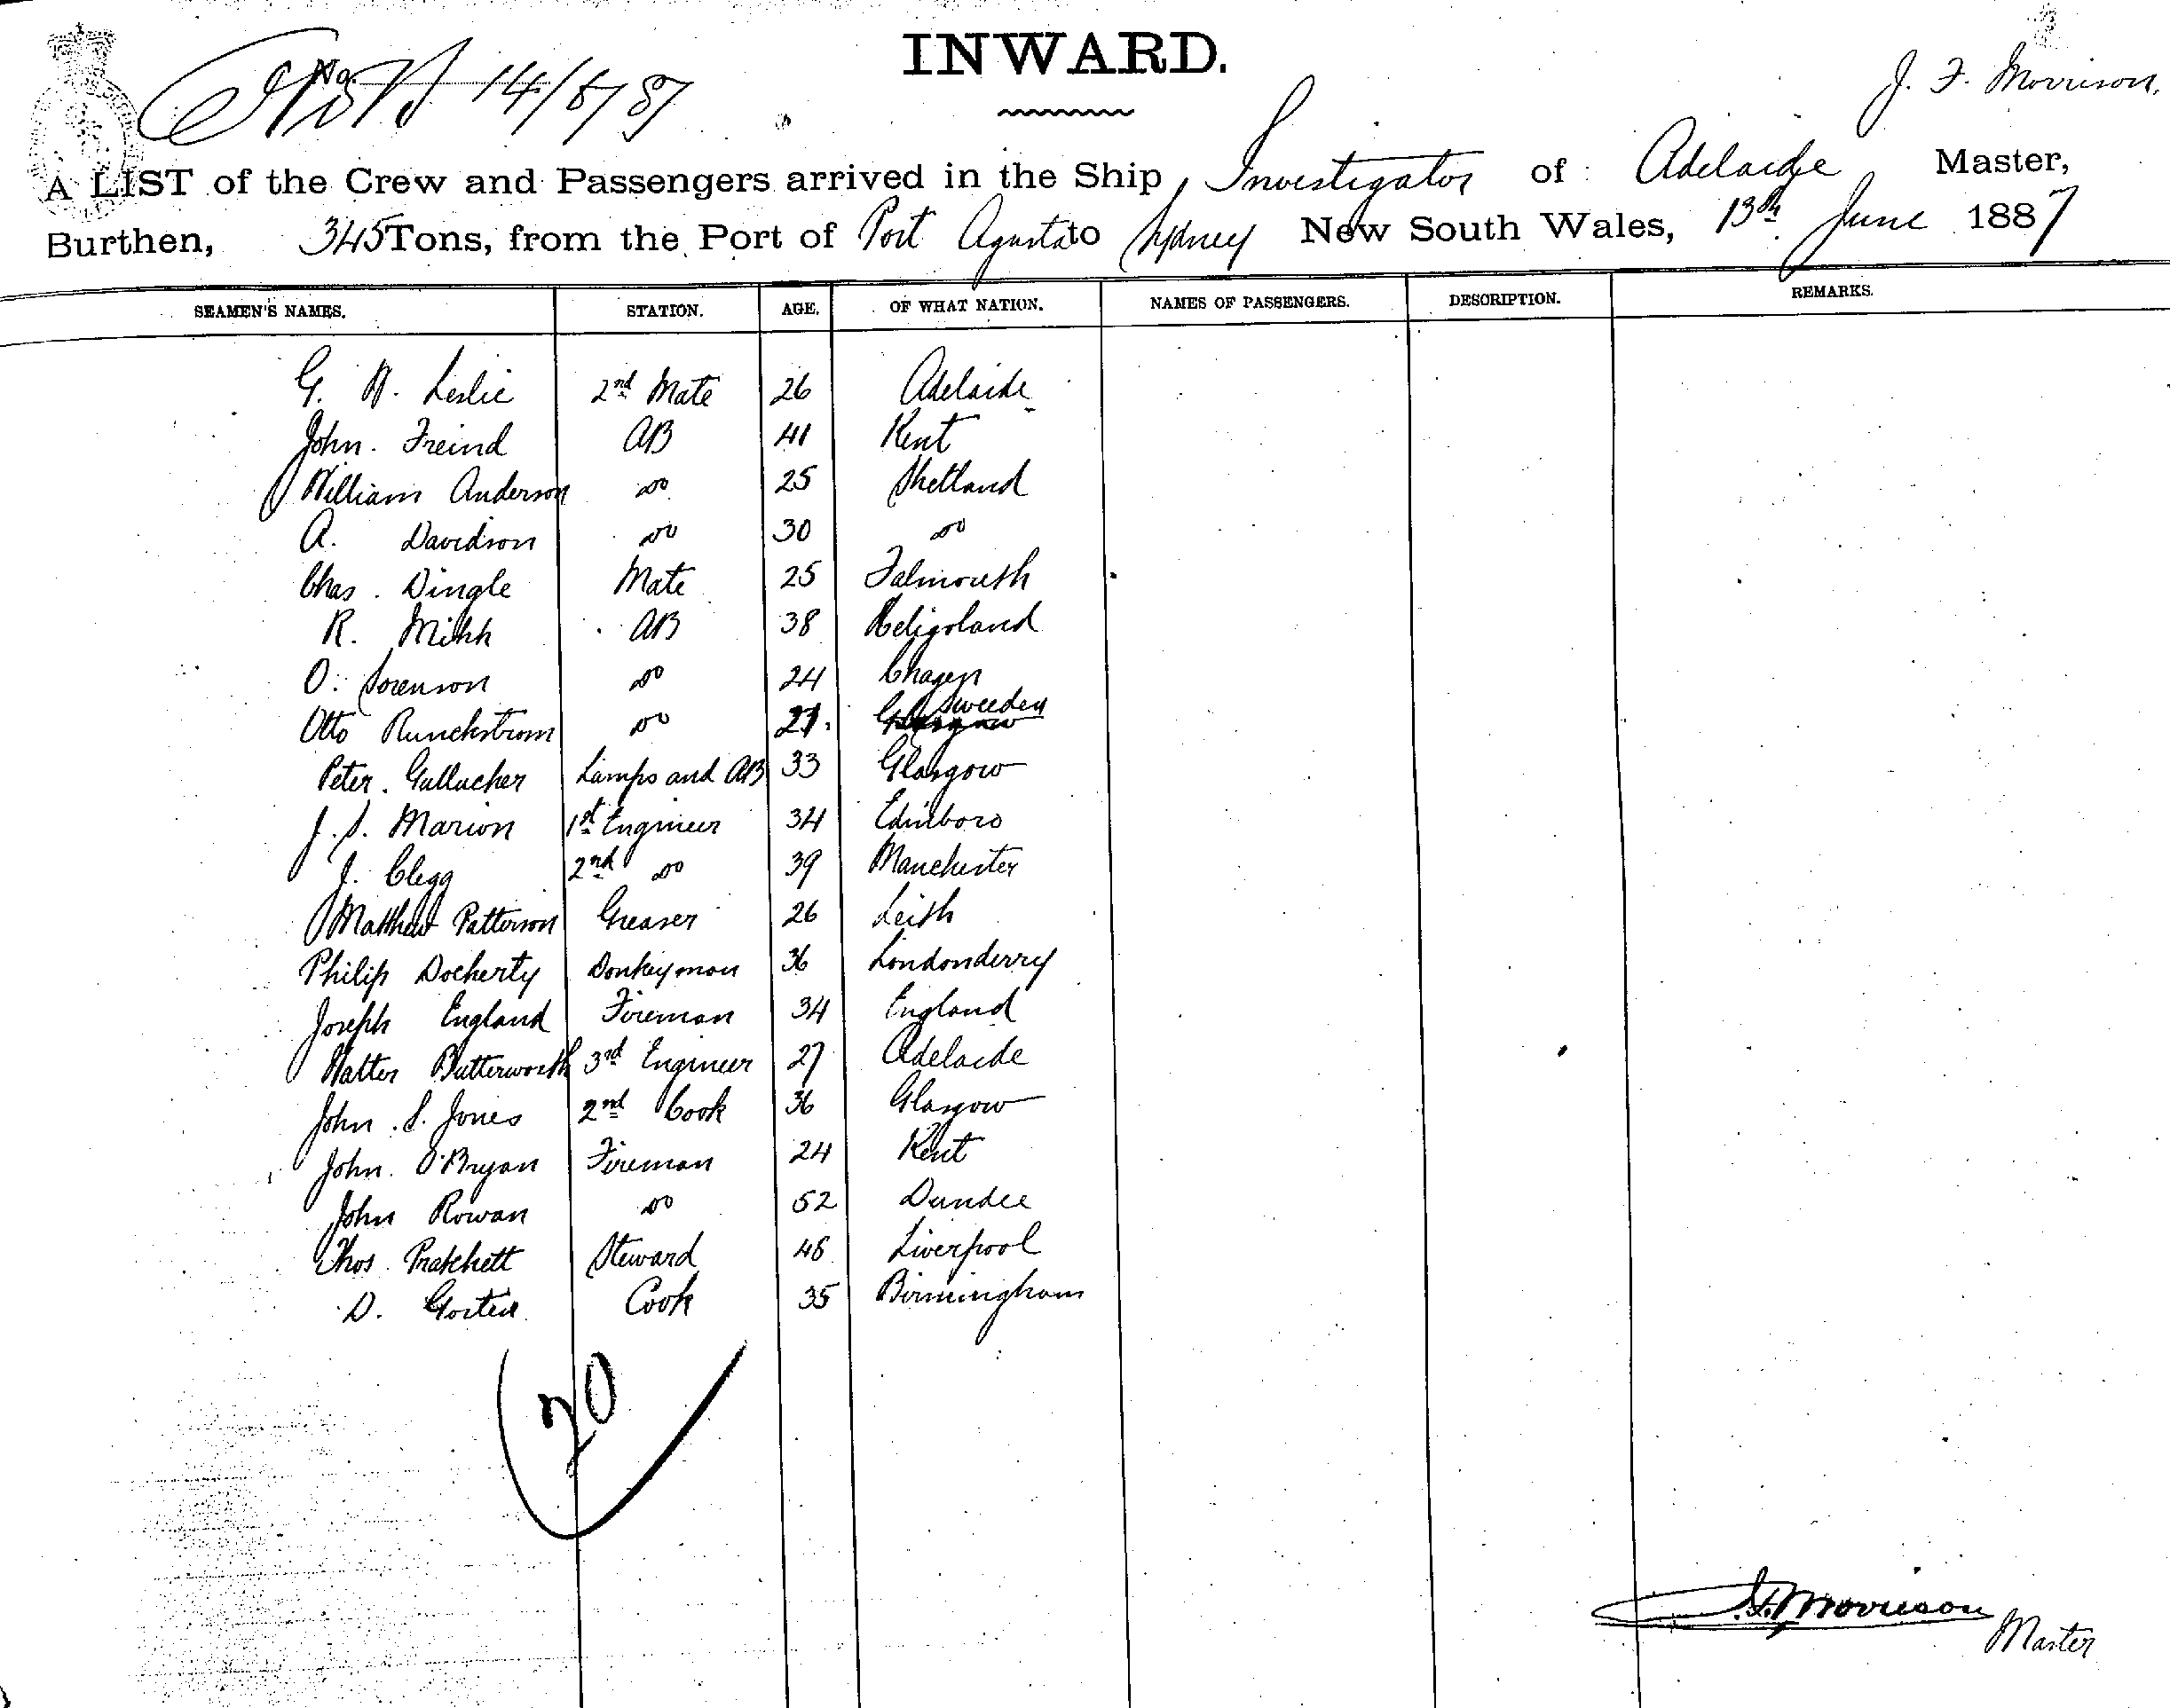 INWARD.
No. 14/6/87
J. F. Morrison,
A LIST of the Crew and Passengers arrived in the Ship Investigator of Adelaide Master,
Burthen, 345 Tons, from the Port of Port Agusta to Sydney New South Wales, 13th June 1887
SEAMEN'S NAMES. STATION. AGE. OF WHAT NATION. NAMES OF PASSENGERS. DESCRIPTION. REMARKS.
G. W. Leslie 2nd Mate 26 Adelaide
John. Freind AB 41 Kent
William Anderson do 25 Shetland
A. Davidson do 30 do
Chas. Dingle Mate 25 Falmouth
R. Mihh AB 38 Heligoland
O. Sorenson do 24 Chagen
Otto Runckstrom do 21. Glasgow Sweden
Peter. Gallacher Lamps and AB 33 Glasgow
J. S. Marion 1st Engineer 34 Edinboro
J. Clegg 2nd do 39 Manchester
Matthew Patterson Greaser 26 Leith
Philip Docherty Donkeyman 36 Londonderry
Joseph England Fireman 34 England
Walter Butterworth 3rd Engineer 27 Adelaide
John. S. Jones 2nd Cook 36 Glasgow
John. O'Bryan Fireman 24 Kent
John Rowan do 52 Dundee
Thos. Pratchett Steward 48 Liverpool
D. Cook 35 Birmingham
20
J. F. Morrison
Master